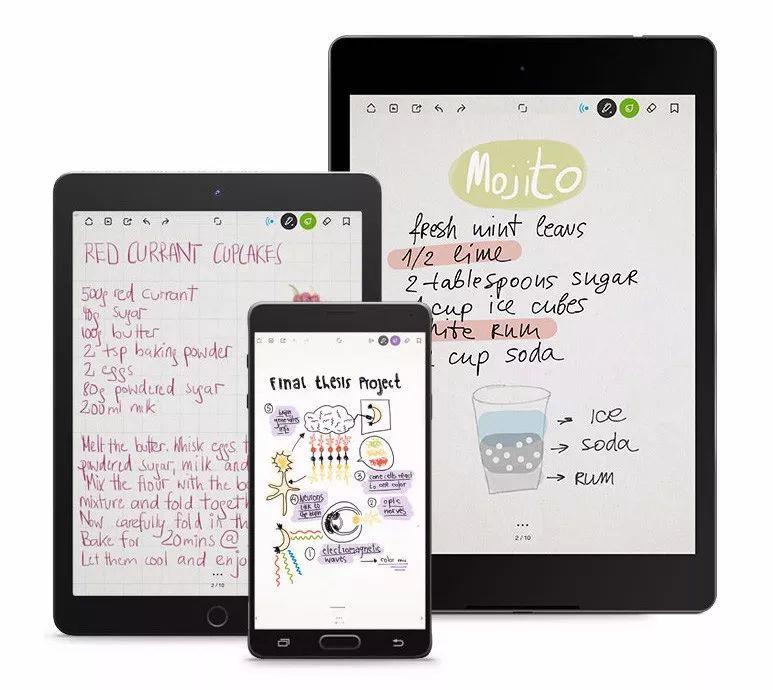 RED CURRANT CUPCAKES
500g red currant
40g sugar
100g butter
2 tsp baking powder
2 eggs
80g powdered sugar
200ml milk
Melt the butter. Whisk eggs
powdered sugar, milk and
Mix the flour with the
mixture and fold
Now carefully fold in
Bake for 20mins @
Let them cool and
2/10
Final thesis Project
5
brain
generates
info
3 cone cells react
to one color
4 Neurons
talk to
the brain
2 optic
nerves
1 electromagnetic
waves → color mix
Mojito
fresh mint leavs
1/2 lime
2 tablespoons sugar
cup ice cubes
RUM
cup soda
→ ICE
→ SODA
→ RUM
2/10